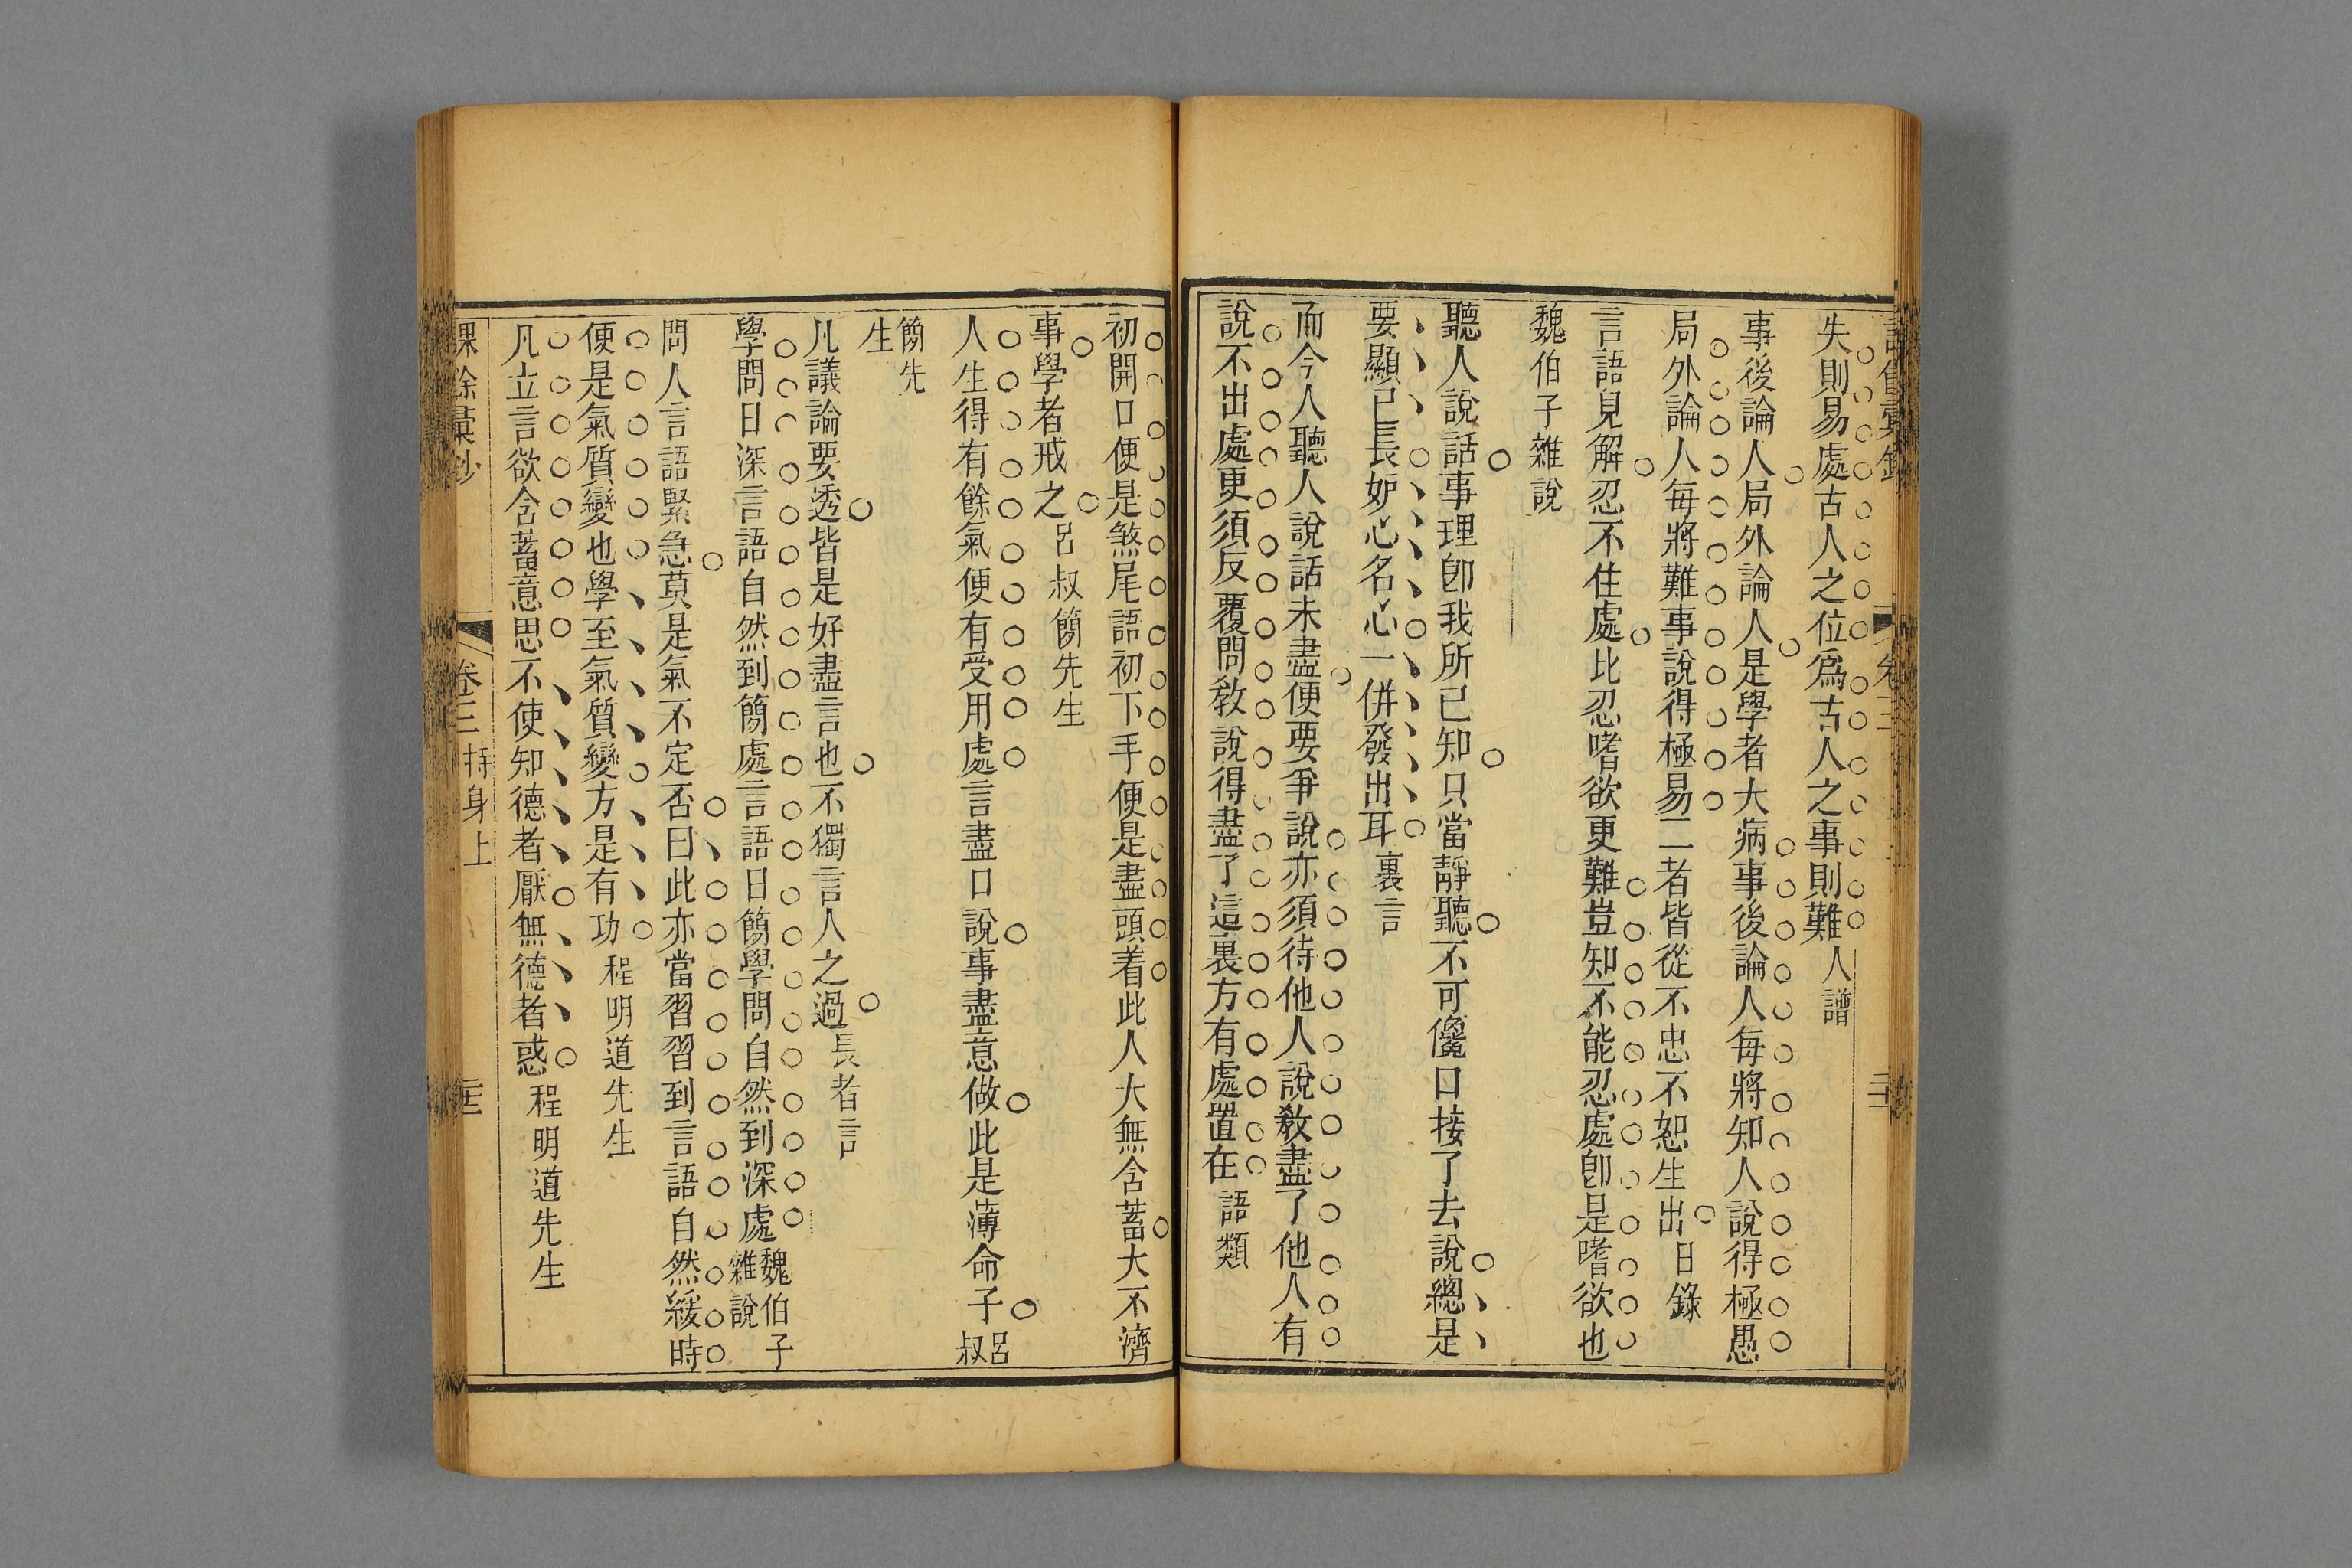 失則易處古人之位爲古人之事則難人譜
事後論人局外論人是學者大病事後論人每將知人說得極愚
局外論人每將難事說得極易二者皆從不忠不恕生出日錄
言語見解忍不住處比忍嗜欲更難豈知不能忍處卽是嗜欲也
魏伯子雜說
聽人說話事理卽我所已知只當靜聽不可儳口接了去說總是
要顯己長妒心名心一併發出耳裏言
而今人聽人說話未盡便要爭說亦須待他人說教盡了他人有
說不出處更須反覆問敎說得盡了這裏方有處置在語類
初開口便是煞尾語初下手便是盡頭着此人大無含蓄大不濟
事學者戒之呂叔簡先生
人生得有餘氣便有受用處言盡口說事盡意做此是薄命子呂叔
簡先
生
凡議論要透皆是好盡言也不獨言人之過長者言
學問日深言語自然到簡處言語日簡學問自然到深處魏伯子雜說
問人言語緊急莫是氣不定否曰此亦當習習到言語自然緩時
便是氣質變也學至氣質變方是有功程明道先生
凡立言欲含蓄意思不使知德者厭無德者惑程明道先生
課餘彙鈔
卷三
持身上